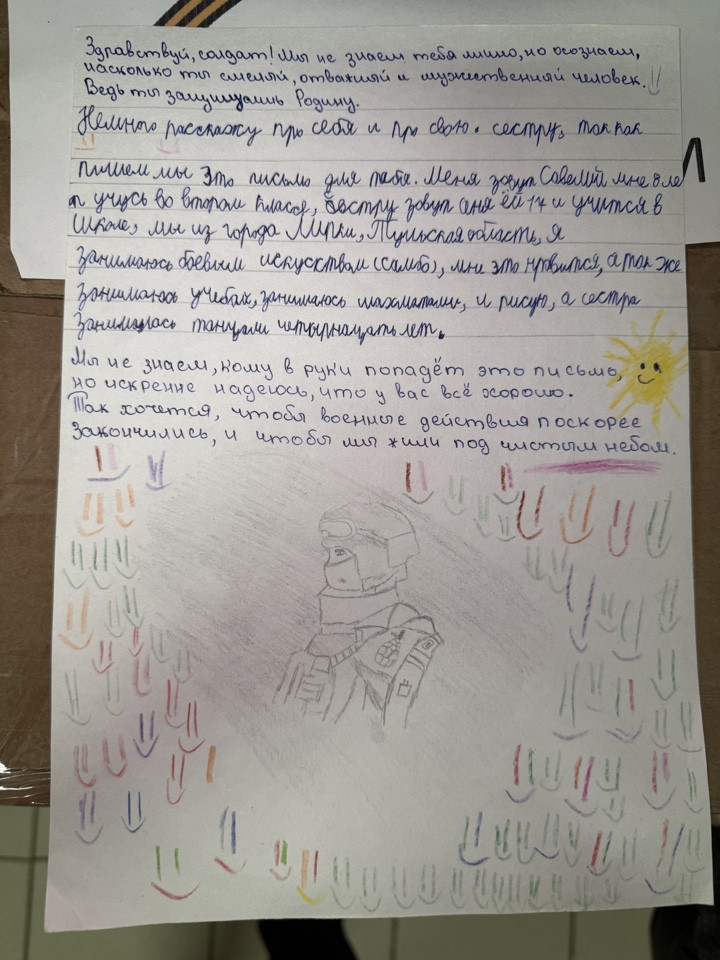 Здравствуй, солдат! Мы не знаем тебя лично, но осознаем,
насколько ты смелый, отважный и мужественный человек.
Ведь ты защищаешь Родину.
Немного расскажу про себя и про свою. сестру, так как
пишем мы это письмо для тебя. Меня зовут Савелий мне 8 ле
т учусь во втором классе, сестру зовут Аня ей 17 и учится в
школе, мы из города Липки, Тульская область, я
занимаюсь боевым искусством (самбо), мне это нравится, а так же
занимаюсь учебай, занимаюсь шахматами, и рисую, а сестра
занималась танцами четырнацать лет.
Мы не знаем, кому в руки попадёт это письмо,
но искренне надеюсь, что у вас всё хорошо.
Так хочется, чтобы военные действия поскорее
закончились, и чтобы мы жили под чистым небом.